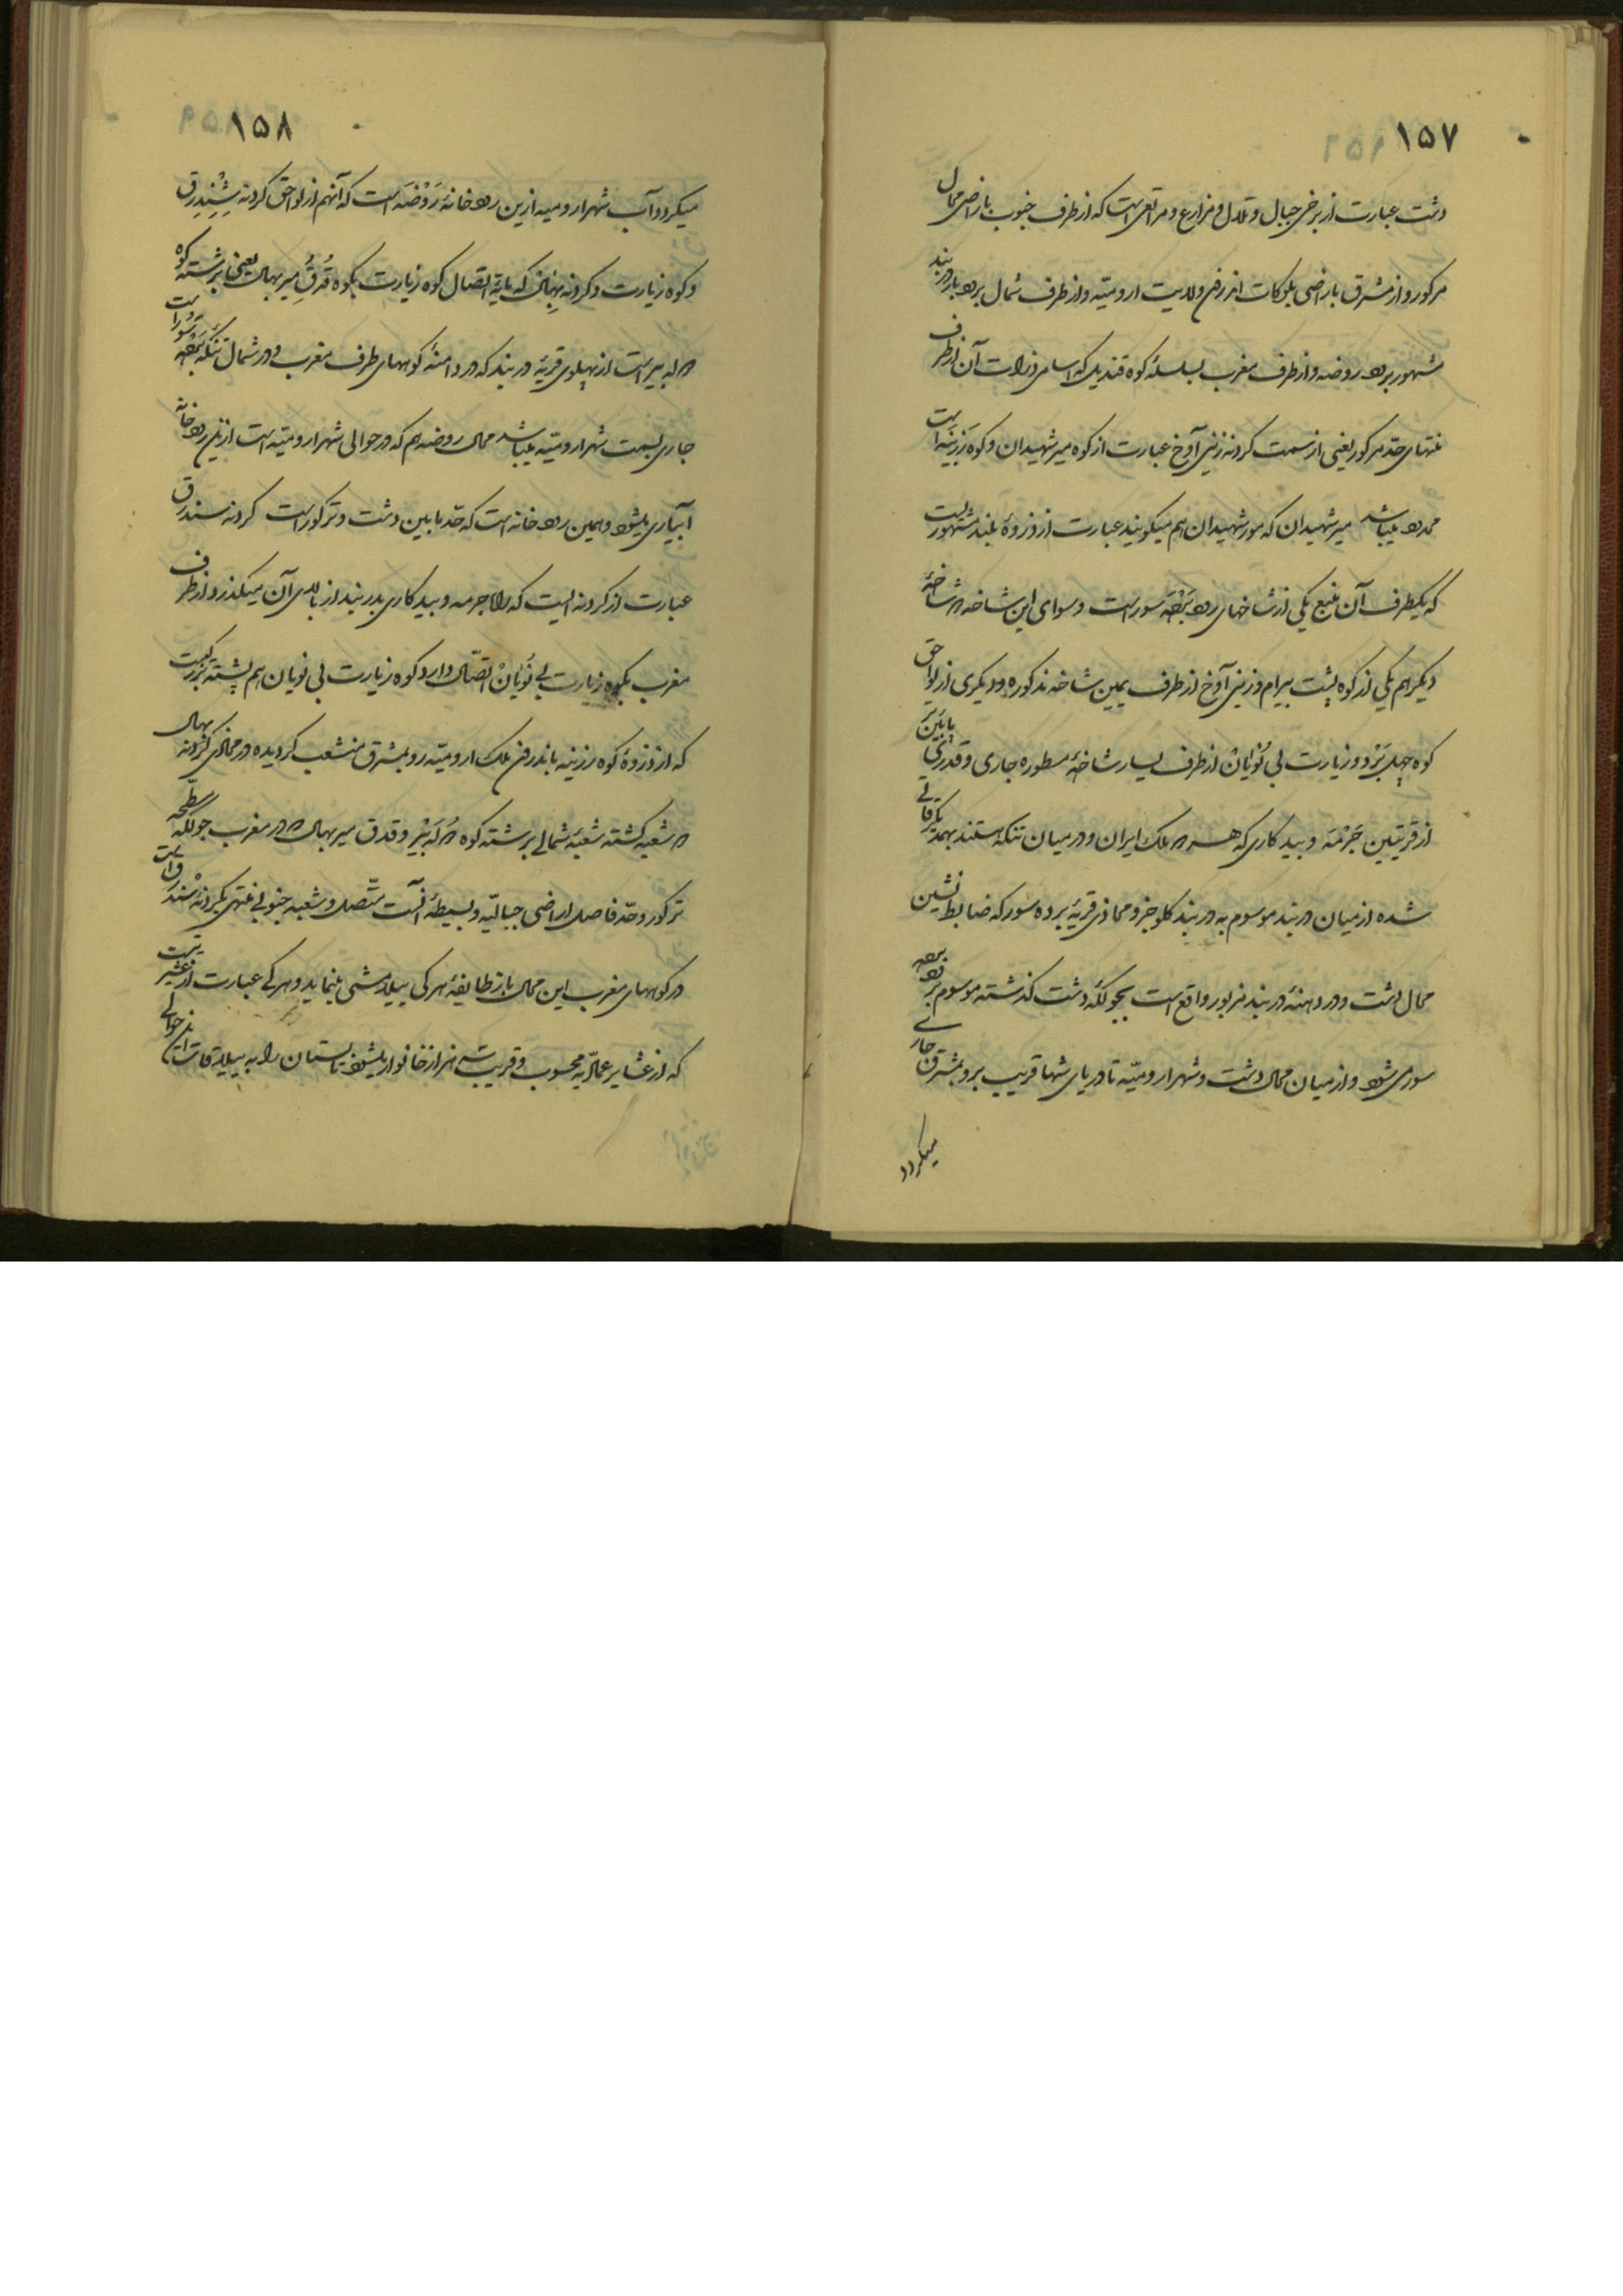 ۱۵۷
دشت عبارت از برخی جبال و تلال و مزارع و مراتعی است که از طرف جنوب باراضی محال
مرکور و از مشرق باراضی بلوکات اندرون ولایت ارومیّه و از طرف شمال برود باردربند
مشهور برود روضه و از طرف مغرب بسلسلهٔ کوه قندیل که اسامی ذروات آن از طرف
منتهای حدّ مرکور یعنی از سمت کردنه زینی آوخ عبارت از کوه میر شهیدان و کوه رزینه است
محدود میباشد میر شهیدان که مور شهیدان هم میگویند عبارت از ذروهٔ بلند مشهوریست
که یکطرف آن منبع یکی از شاخهای رود بَرْدَه سور است و سوای این شاخه دو شاخهٔ
دیگر هم یکی از کوه پشت بیرام و زینی آوخ از طرف یمین شاخه مذکوره و دیگری از لواحق
کوه چهل بَرْد و زیارت بی نُوْیَانْ از طرف یسار شاخهٔ مسطوره جاری و قدری پایین‌تر
از قریتین جَرْمَه و بیدکاری که هر دو ملک ایران و در میان تنگه هستند بهمدیگر ملاقی
شده از میان دربند موسوم به دربند کلوجز و محاذی قریهٔ برده سور که ضابط نشین
محال دشت و در دهنهٔ دربند مزبور واقع است بجولگهٔ دشت گذشته موسوم برود برده
سور می شود و از میان محال دشت و شهر ارومیّه تا دریای شها قریب برو بمشرق جاری
میگردد
۱۵۸
میگردد و آب شهر ارومیه ازین رودخانهٔ رَوْضَه است که آنهم از لواحق کردنه شِنِیدرق
و کوه زیارت و کردنه نهانی که مایهٔ اتصال کوه زیارت بکوه قُرُقُ میر بهال یعنی بر شته کوه
دو له بیر است از پهلوی قریهٔ دربند که در دامنهٔ کوههای طرف مغرب و در شمال تنگه برده سور است
جاری بسمت شهر ارومیّه میباشد محال روضه هم که در حوالی شهر ارومیّه است ازین رودخانه
آبیاری میشود و همین رودخانه است که حدّ مابین دشت و ترکور است کردنه سندرق
عبارت از کردنه ایست که راه جرمه و بیدکاری بدربند از بالای آن میگذرد و از طرف
مغرب بکوه زیارت بی نُویَانْ اتّصال دارد و کوه زیارت بی نویان هم پشته بزرگیست
که از ذروهٔ کوه رزینه باندرون ملک ارومیّه رو بمشرق منشعب گردیده در محاذی کردنه نهال
دو شعبه گشته شعبهٔ شمالی بر شته کوه دُولَه بَیْر و قدق میر بهال دو در مغرب جولگه مسطّحه
ترکور و حدّ فاصل اراضی جبالیّه و بسیطهٔ آنست متّصل و شعبه جنوبی منتهی بکردنهٔ سندرق است
در کوههای مغرب این محال باز طایفهٔ هرکی ییلامشی مینماید و هرکی عبارت از عشیرتیست
که از عشایر عمادیّه محسوب و قریب سه هزار خانوار میشوند تابستان را به ییلاقات این حوالی